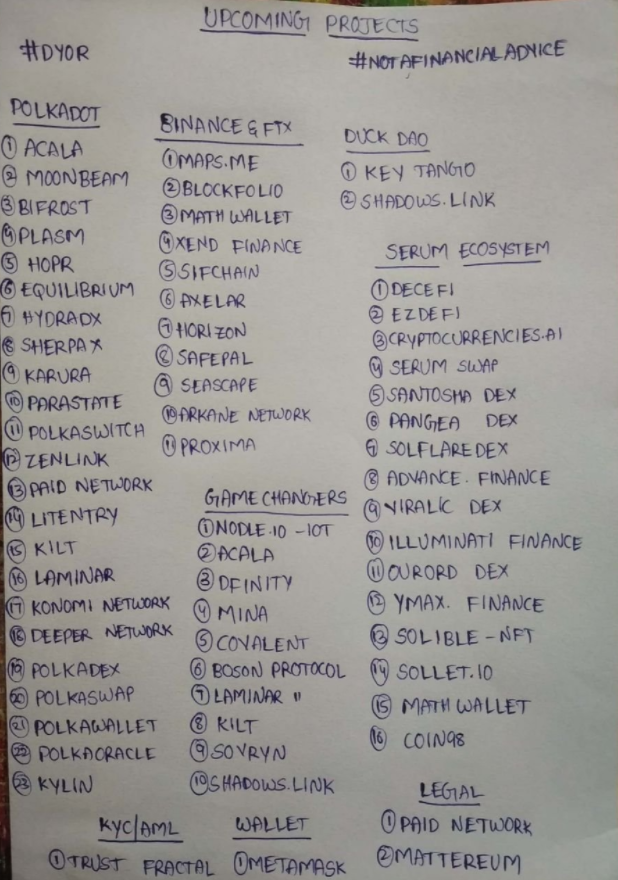 UPCOMING PROJECTS
#DYOR
#NOTAFINANCIALADVICE
POLKADOT
① ACALA
② MOONBEAM
③ BIFROST
④ PLASM
⑤ HOPR
⑥ EQUILIBRIUM
⑦ HYDRADX
⑧ SHERPAX
⑨ KARURA
⑩ PARASTATE
⑪ POLKASWITCH
⑫ ZENLINK
⑬ PAID NETWORK
⑭ LITENTRY
⑮ KILT
⑯ LAMINAR
⑰ KONOMI NETWORK
⑱ DEEPER NETWORK
⑲ POLKADEX
⑳ POLKASWAP
㉑ POLKAWALLET
㉒ POLKAORACLE
㉓ KYLIN
BINANCE & FTX
① MAPS.ME
② BLOCKFOLIO
③ MATH WALLET
④ XEND FINANCE
⑤ SIFCHAIN
⑥ AXELAR
⑦ HORIZON
⑧ SAFEPAL
⑨ SEASCAPE
⑩ ARKANE NETWORK
⑪ PROXIMA
GAME CHANGERS
① NODLE.IO - IOT
② ACALA
③ DFINITY
④ MINA
⑤ COVALENT
⑥ BOSON PROTOCOL
⑦ LAMINAR "
⑧ KILT
⑨ SOVRYN
⑩ SHADOWS.LINK
DUCK DAO
① KEY TANGO
② SHADOWS.LINK
SERUM ECOSYSTEM
① DECEFI
② EZDEFI
③ CRYPTOCURRENCIES.AI
④ SERUM SWAP
⑤ SANTOSHA DEX
⑥ PANGEA DEX
⑦ SOLFLARE DEX
⑧ ADVANCE. FINANCE
⑨ VIRALIC DEX
⑩ ILLUMINATI FINANCE
⑪ OURORD DEX
⑫ YMAX. FINANCE
⑬ SOLIBLE - NFT
⑭ SOLLET.IO
⑮ MATH WALLET
⑯ COIN98
KYC/AML
① TRUST FRACTAL
WALLET
① METAMASK
LEGAL
① PAID NETWORK
② MATTEREUM